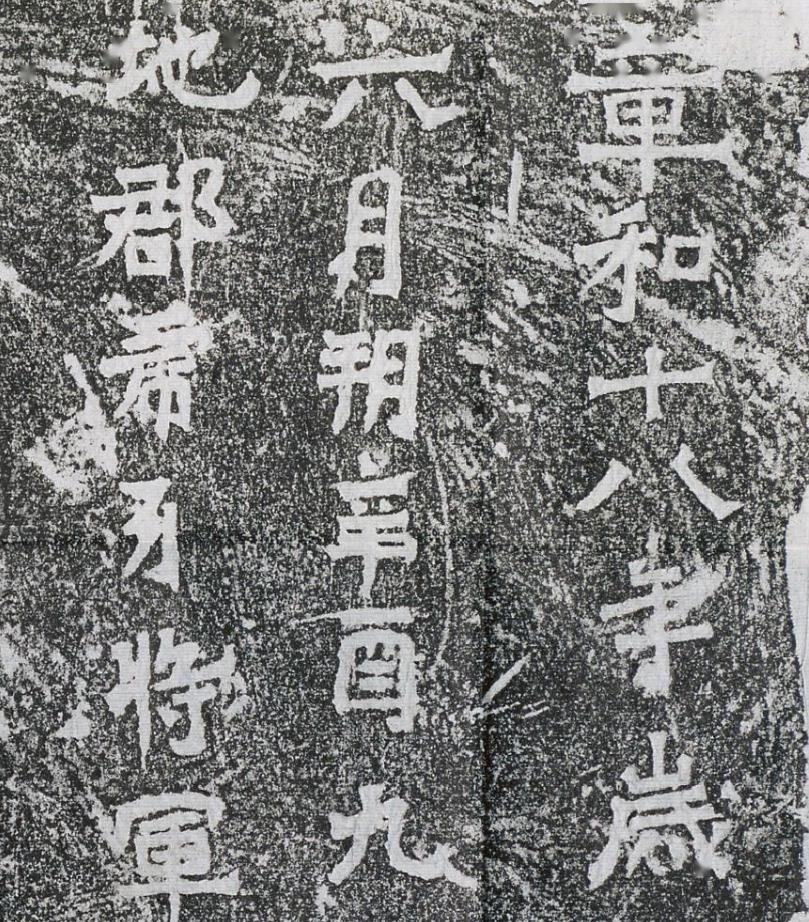 章和十八年歲
六月朔辛酉九
地郡虎牙將軍